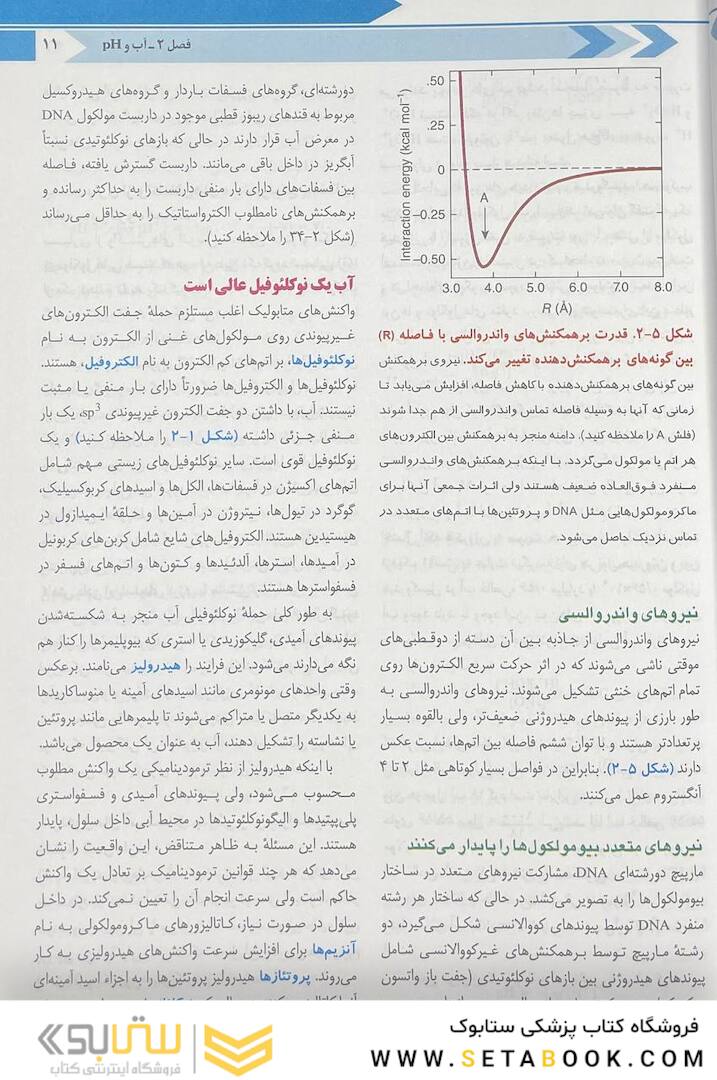 فصل ۲ ـ آب و pH
۱۱
Interaction energy (kcal mol⁻¹)
.50
.25
0
−0.25
−0.50
A
3.0 4.0 5.0 6.0 7.0 8.0
R (Å)
شکل ۵-۲. قدرت برهمکنش‌های واندروالسی با فاصله (R)
بین گونه‌های برهمکنش‌دهنده تغییر می‌کند. نیروی برهمکنش
بین گونه‌های برهمکنش‌دهنده با کاهش فاصله، افزایش می‌یابد تا
زمانی که آنها به وسیله فاصله تماس واندروالسی از هم جدا شوند
(فلش A را ملاحظه کنید). دامنه منجر به برهمکنش بین الکترون‌های
هر اتم یا مولکول می‌گردد. با اینکه برهمکنش‌های واندروالسی
منفرد فوق‌العاده ضعیف هستند ولی اثرات جمعی آنها برای
ماکرومولکول‌هایی مثل DNA و پروتئین‌ها با اتم‌های متعدد در
تماس نزدیک حاصل می‌شود.
نیروهای واندروالسی
نیروهای واندروالسی از جاذبه بین آن دسته از دوقطبی‌های
موقتی ناشی می‌شوند که در اثر حرکت سریع الکترون‌ها روی
تمام اتم‌های خنثی تشکیل می‌شوند. نیروهای واندروالسی به
طور بارزی از پیوندهای هیدروژنی ضعیف‌تر، ولی بالقوه بسیار
پرتعدادتر هستند و با توان ششم فاصله بین اتم‌ها، نسبت عکس
دارند (شکل ۵-۲). بنابراین در فواصل بسیار کوتاهی مثل ۲ تا ۴
آنگستروم عمل می‌کنند.
نیروهای متعدد بیومولکول‌ها را پایدار می‌کنند
مارپیچ دورشته‌ای DNA، مشارکت نیروهای متعدد در ساختار
بیومولکول‌ها را به تصویر می‌کشد. در حالی که ساختار هر رشته
منفرد DNA توسط پیوندهای کووالانسی شکل می‌گیرد، دو
رشتهٔ مارپیچ توسط برهمکنش‌های غیرکووالانسی شامل
پیوندهای هیدروژنی بین بازهای نوکلئوتیدی (جفت باز واتسون
دورشته‌ای، گروه‌های فسفات باردار و گروه‌های هیدروکسیل
مربوط به قندهای ریبوز قطبی موجود در داربست مولکول DNA
در معرض آب قرار دارند در حالی که بازهای نوکلئوتیدی نسبتاً
آبگریز در داخل باقی می‌مانند. داربست گسترش یافته، فاصله
بین فسفات‌های دارای بار منفی داربست را به حداکثر رسانده و
برهمکنش‌های نامطلوب الکترواستاتیک را به حداقل می‌رساند
(شکل ۲-۳۴ را ملاحظه کنید).
آب یک نوکلئوفیل عالی است
واکنش‌های متابولیک اغلب مستلزم حملهٔ جفت الکترون‌های
غیرپیوندی روی مولکول‌های غنی از الکترون به نام
نوکلئوفیل‌ها، بر اتم‌های کم الکترون به نام الکتروفیل، هستند.
نوکلئوفیل‌ها و الکتروفیل‌ها ضرورتاً دارای بار منفی یا مثبت
نیستند. آب، با داشتن دو جفت الکترون غیرپیوندی sp³، یک بار
منفی جزئی داشته (شکل ۱-۲ را ملاحظه کنید) و یک
نوکلئوفیل قوی است. سایر نوکلئوفیل‌های زیستی مهم شامل
اتم‌های اکسیژن در فسفات‌ها، الکل‌ها و اسیدهای کربوکسیلیک،
گوگرد در تیول‌ها، نیتروژن در آمین‌ها و حلقهٔ ایمیدازول در
هیستیدین هستند. الکتروفیل‌های شایع شامل کربن‌های کربونیل
در آمیدها، استرها، آلدئیدها و کتون‌ها و اتم‌های فسفر در
فسفواسترها هستند.
به طور کلی حملهٔ نوکلئوفیلی آب منجر به شکسته‌شدن
پیوندهای آمیدی، گلیکوزیدی یا استری که بیوپلیمرها را کنار هم
نگه می‌دارند می‌شود. این فرایند را هیدرولیز می‌نامند. برعکس
وقتی واحدهای مونومری مانند اسیدهای آمینه یا منوساکاریدها
به یکدیگر متصل یا متراکم می‌شوند تا پلیمرهایی مانند پروتئین
یا نشاسته را تشکیل دهند، آب به عنوان یک محصول می‌باشد.
با اینکه هیدرولیز از نظر ترمودینامیکی یک واکنش مطلوب
محسوب می‌شود، ولی پیوندهای آمیدی و فسفواستری
پلی‌پپتیدها و الیگونوکلئوتیدها در محیط آبی داخل سلول، پایدار
هستند. این مسئلهٔ به ظاهر متناقض، این واقعیت را نشان
می‌دهد که هر چند قوانین ترمودینامیک بر تعادل یک واکنش
حاکم است ولی سرعت انجام آن را تعیین نمی‌کند. در داخل
سلول در صورت نیاز، کاتالیزورهای ماکرومولکولی به نام
آنزیم‌ها برای افزایش سرعت واکنش‌های هیدرولیزی به کار
می‌روند. پروتئازها هیدرولیز پروتئین‌ها را به اجزاء اسید آمینه‌ای
فروشگاه کتاب پزشکی ستابوک
WWW.SETABOOK.COM
ستابوک
فروشگاه اینترنتی کتاب